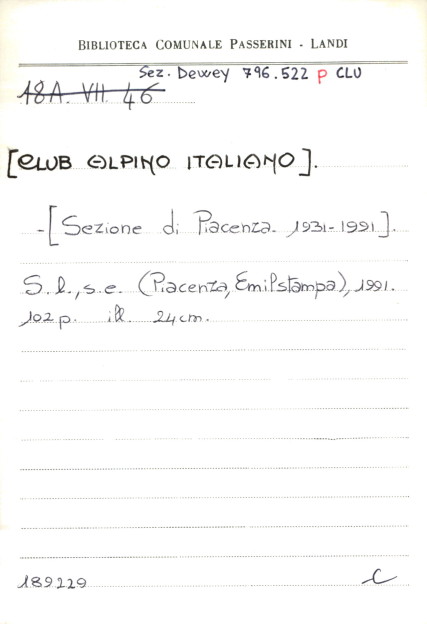 BIBLIOTECA COMUNALE PASSERINI - LANDI
Sez. Dewey 796.522 p CLU
18A. VII. 46
[CLUB ALPINO ITALIANO].
-[Sezione di Piacenza. 1931-1991].
S.l., s.e. (Piacenza, Emilstampa), 1991.
102 p. ill. 24 cm.
189229 C